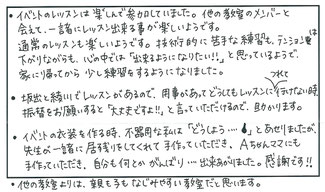 ・イベントのレッスンは楽しんで参加していました。他の教室のメンバーと
会えて、一緒にレッスン出来る事が楽しいようです。
通常のレッスンも楽しいようです。技術的に苦手な練習も、テンションは
下がりながらも、心の中では「出来るようになりたい!!」と思っているようで、
家に帰ってから少し練習をするようになりました。
・坂出と綾川でレッスンがあるので、用事があってどうしてもレッスンにつれて行けない時
振替をお願いすると「大丈夫ですよ!!」と言っていただけるので、助かります。
・イベントの衣装を作る時、不器用な私は「どうしよう…」とあせりましたが、
先生が一緒に居残りをしてくれて手作っていただき、Aちゃんママにも
手作っていただき、自分も何とかがんばり…出来あがりました。感謝です!!
・他の教室よりは、親も子もなじみやすい教室だと思います。